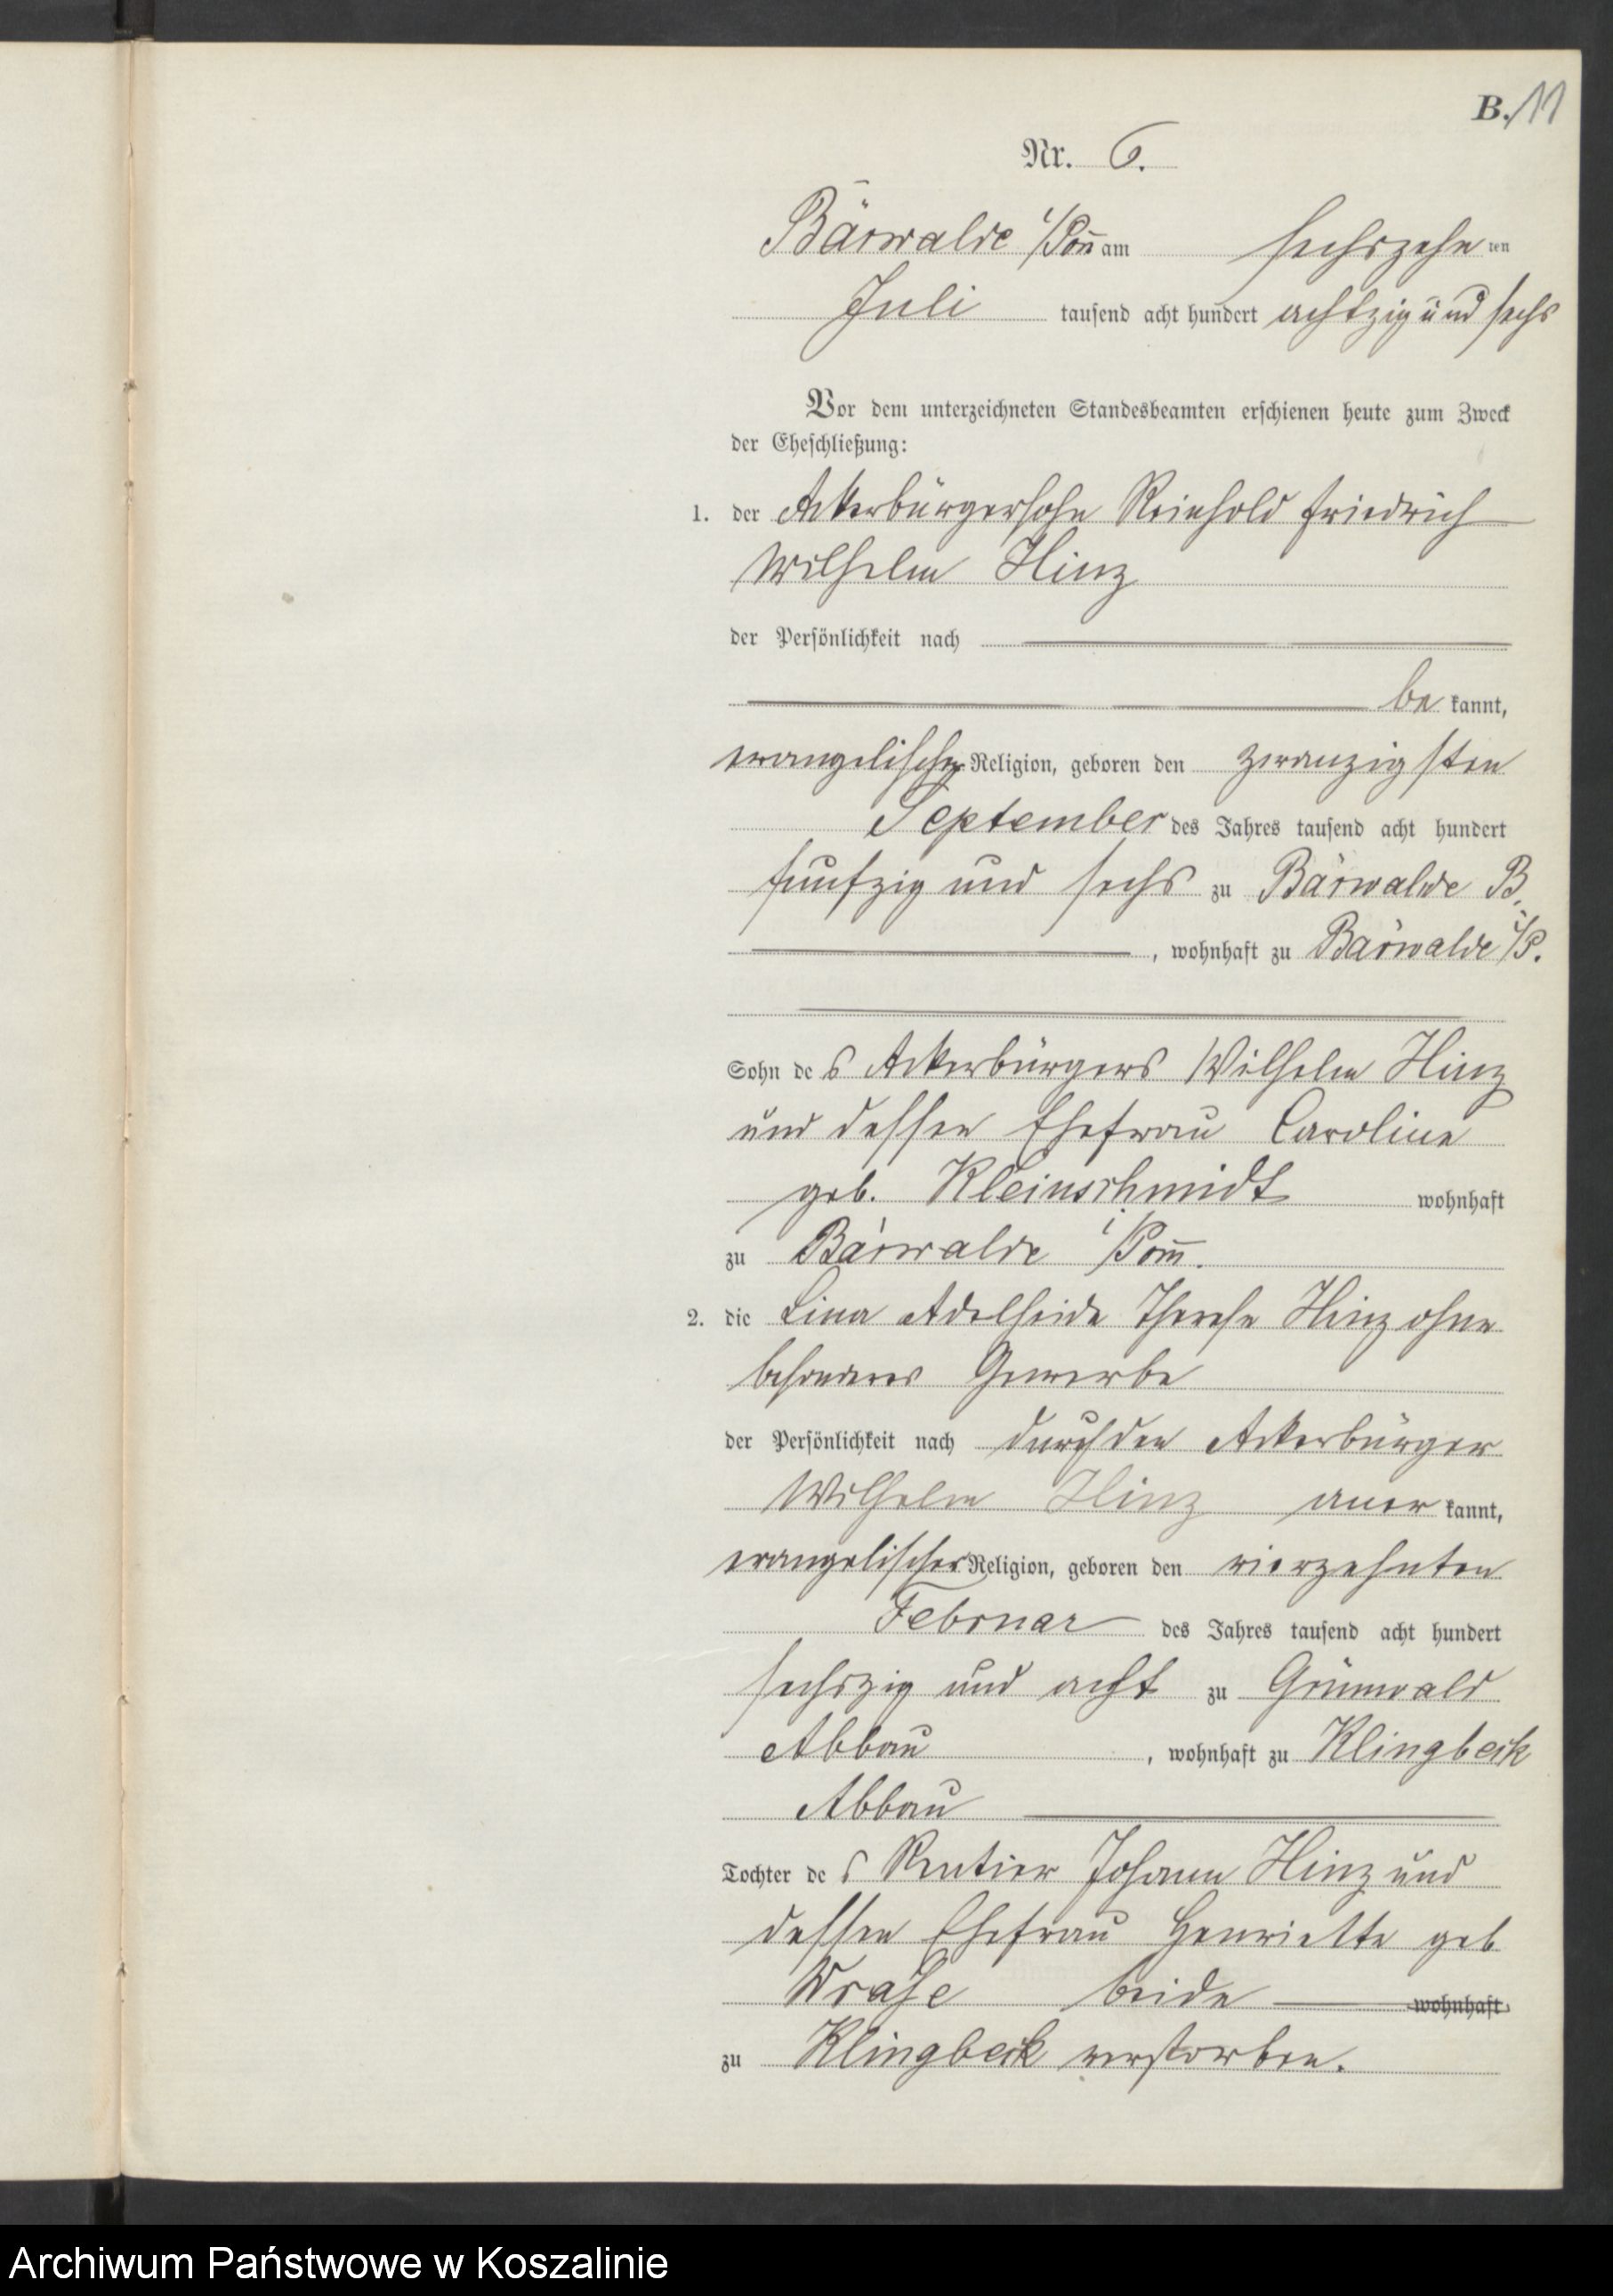 B. 11
Nr. 6.
Bärwalde i/Pom am sechszehn ten
Juli tausend acht hundert achtzig und sechs
Vor dem unterzeichneten Standesbeamten erschienen heute zum Zweck
der Eheschließung:
1. der Ackerbürgersohn Reinhold Friedrich
Wilhelm Hinz
der Persönlichkeit nach
be kannt,
evangelischer Religion, geboren den zwanzigsten
September des Jahres tausend acht hundert
funfzig und sechs zu Bärwalde B.
, wohnhaft zu Bärwalde i/P.
Sohn des Ackerbürgers Wilhelm Hinz
und dessen Ehefrau Caroline
geb. Kleinschmidt wohnhaft
zu Bärwalde i/Pom.
2. die Lina Adelheide Therese Hinz ohne
besonderes Gewerbe
der Persönlichkeit nach durch den Ackerbürger
Wilhelm Hinz aner kannt,
evangelischer Religion, geboren den vierzehnten
Februar des Jahres tausend acht hundert
sechszig und acht zu Grünwald
Abbau , wohnhaft zu Klingbeck
Abbau
Tochter des Rentier Johann Hinz und
dessen Ehefrau Henriette geb
beide wohnhaft
zu Klingbeck verstorben.
Archiwum Państwowe w Koszalinie